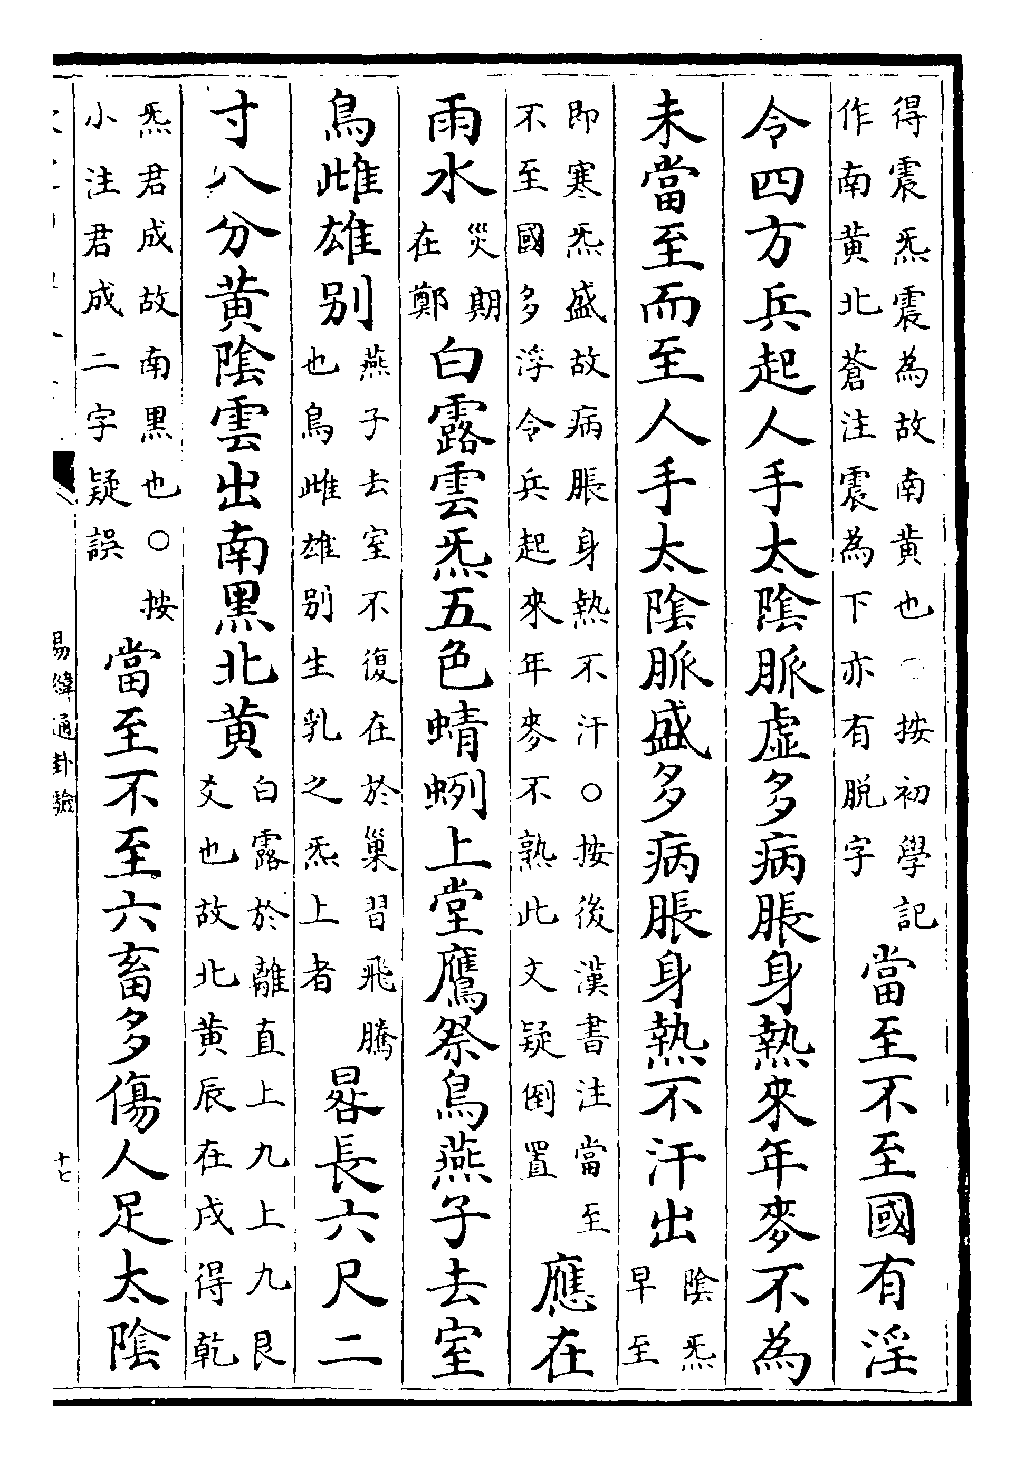 得震炁震為故南黃也○按初學記
作南黃北蒼注震為下亦有脫字
當至不至國有淫
令四方兵起人手太陰脈虛多病脹身熱來年麥不為
未當至而至人手太陰脈盛多病脹身熱不汗出
陰炁
早至
即寒炁盛故病脹身熱不汗○按後漢書注當至
不至國多浮令兵起來年麥不熟此文疑倒置
應在
雨水
災期
在鄭
白露雲炁五色蜻蛚上堂鷹祭鳥燕子去室
鳥雌雄別
燕子去室不復在於巢習飛騰
也鳥雌雄別生乳之炁上者
晷長六尺二
寸八分黃陰雲出南黑北黃
白露於離直上九上九艮
爻也故北黃辰在戌得乾
炁君成故南黑也○按
小注君成二字疑誤
當至不至六畜多傷人足太陰
易緯通卦驗
十七